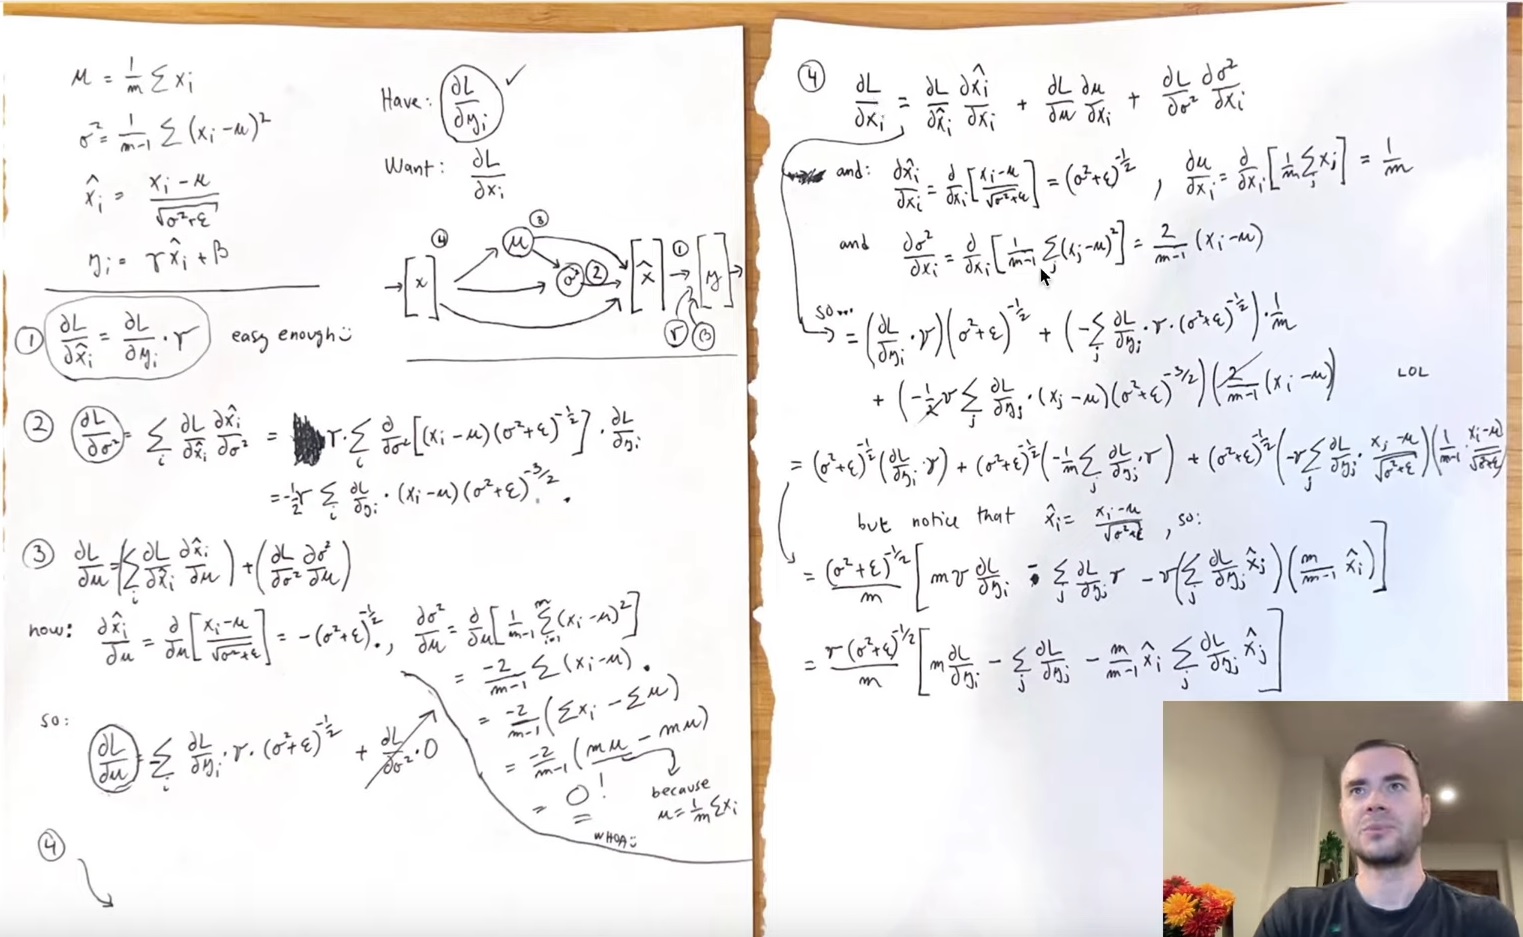 μ = 1/m Σ xᵢ
σ² = 1/(m-1) Σ (xᵢ-μ)²
x̂ᵢ = (xᵢ-μ)/√(σ²+ε)
yᵢ = γx̂ᵢ + β
Have: ∂L/∂yᵢ ✓
Want: ∂L/∂xᵢ
④ ③ ① 
→ [x] μ σ² ② [x̂] → [y] →
γ β
① ∂L/∂x̂ᵢ = ∂L/∂yᵢ · γ easy enough :)
② ∂L/∂σ² = Σᵢ ∂L/∂x̂ᵢ ∂x̂ᵢ/∂σ² = γ·Σᵢ ∂/∂σ² [(xᵢ-μ)(σ²+ε)^(-1/2)] · ∂L/∂yᵢ
= -1/2 γ Σᵢ ∂L/∂yᵢ · (xᵢ-μ)(σ²+ε)^(-3/2).
③ ∂L/∂μ = (Σᵢ ∂L/∂x̂ᵢ ∂x̂ᵢ/∂μ) + (∂L/∂σ² ∂σ²/∂μ)
now: ∂x̂ᵢ/∂μ = ∂/∂μ [(xᵢ-μ)/√(σ²+ε)] = -(σ²+ε)^(-1/2)., ∂σ²/∂μ = ∂/∂μ [1/(m-1) Σᵢ₌₁ᵐ (xᵢ-μ)²]
= -2/(m-1) Σ (xᵢ-μ).
= -2/(m-1) (Σxᵢ - Σμ)
= -2/(m-1) (mμ - mμ)
= 0!
because
μ = 1/m Σxᵢ
WHOA :)
so:
∂L/∂μ = -Σᵢ ∂L/∂yᵢ · γ · (σ²+ε)^(-1/2) + ∂L/∂σ² · 0
④
④ ∂L/∂xᵢ = ∂L/∂x̂ᵢ ∂x̂ᵢ/∂xᵢ + ∂L/∂μ ∂μ/∂xᵢ + ∂L/∂σ² ∂σ²/∂xᵢ
and: ∂x̂ᵢ/∂xᵢ = ∂/∂xᵢ [(xᵢ-μ)/√(σ²+ε)] = (σ²+ε)^(-1/2), ∂μ/∂xᵢ = ∂/∂xᵢ [1/m Σⱼ xⱼ] = 1/m
and ∂σ²/∂xᵢ = ∂/∂xᵢ [1/(m-1) Σⱼ (xⱼ-μ)²] = 2/(m-1) (xᵢ-μ)
so...
= (∂L/∂yᵢ · γ)(σ²+ε)^(-1/2) + (-Σⱼ ∂L/∂yⱼ · γ · (σ²+ε)^(-1/2)) · 1/m
+ (-1/2 γ Σⱼ ∂L/∂yⱼ · (xⱼ-μ)(σ²+ε)^(-3/2)) (2/(m-1) (xᵢ-μ)) LOL
= (σ²+ε)^(-1/2) (∂L/∂yᵢ · γ) + (σ²+ε)^(-1/2) (-1/m Σⱼ ∂L/∂yⱼ · γ) + (σ²+ε)^(-1/2) (-γ Σⱼ ∂L/∂yⱼ · (xⱼ-μ)/√(σ²+ε)) (1/(m-1) · (xᵢ-μ)/√(σ²+ε))
but notice that x̂ᵢ = (xᵢ-μ)/√(σ²+ε), so:
= (σ²+ε)^(-1/2)/m [mγ ∂L/∂yᵢ - Σⱼ ∂L/∂yⱼ γ - γ(Σⱼ ∂L/∂yⱼ x̂ⱼ)(m/(m-1) x̂ᵢ)]
= γ(σ²+ε)^(-1/2)/m [m ∂L/∂yᵢ - Σⱼ ∂L/∂yⱼ - m/(m-1) x̂ᵢ Σⱼ ∂L/∂yⱼ x̂ⱼ]